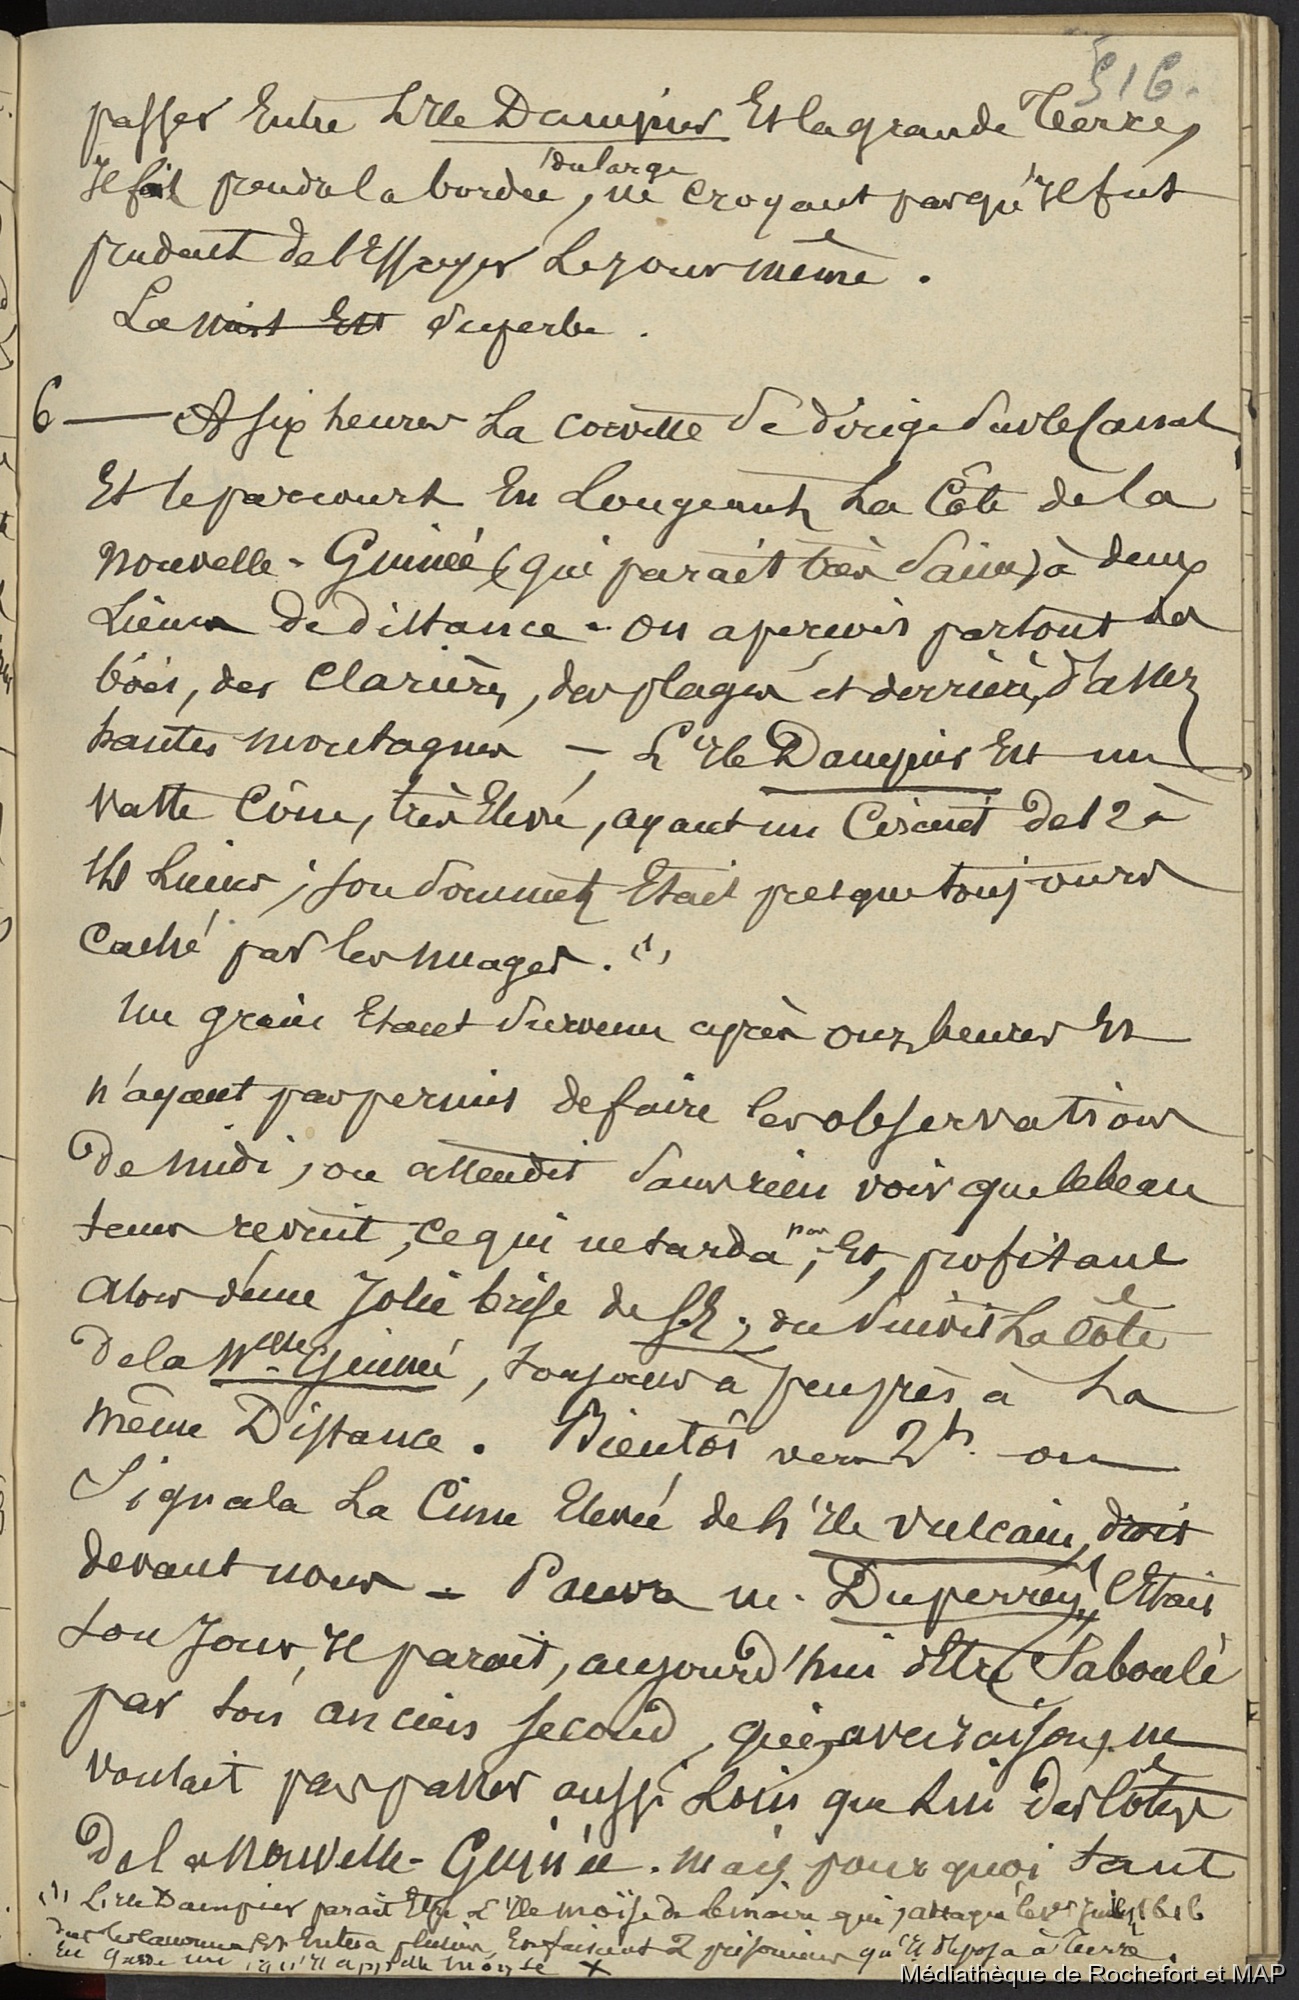 516.
passer Entre L'Ile Dampier Et la grande Terre,
Il fait prendre la bordée du large, ne croyant pas qu'Il fut
prudent de l'Essayer Le jour même.
La nuit Est superbe.
6 — A six heures La corvette se dirige sur le Canal
Et le parcourt En Longeant La Côte de la
Nouvelle-Guinée (qui parait très saine) à deux
Lieues de distance - on aperçoit partout des
bois, des clarières, des plages et derrière, d'assez
hautes montagnes —, L'Ile Dampier Est un
vaste Cône, très Elevé, ayant un Circuit de 12 à
Lieues ; son sommet Etait presque toujours
Caché par les nuages. (1)
Un grain Etant survenu après onze heures Et
n'ayant pas permis de faire les observations
de midi, on attendit sans rien voir que le beau
tems revint, ce qui ne tarda pas ; Et, profitant
alors d'une Jolie brise de S.E., on suivit La Côte
de la Nelle Guinée, toujours à peu près à La
même Distance. Bientôt vers 2h. on
Signala La Cime Elevée de L'Ile Vulcain, droit
devant nous - Pauvre M. Duperrey ! C'Etait
son Jour, Il parait, aujourd'hui d'Etre Saboulé
par son ancien second, qui, avec raison, ne
voulait pas passer aussi Loin que Lui des Côtes
De la Nouvelle-Guinée. Mais pourquoi tant
(1) L'Ile Dampier parait Etre L'Ile Moïse de Lemaire qui, attaqué le 1er Juillet 1616
par les En tua plusieurs, En faisant 2 prisonniers qu'Il déposa à Terre.
En garda un, qu'Il appella Moyse X
Médiathèque de Rochefort et MAP